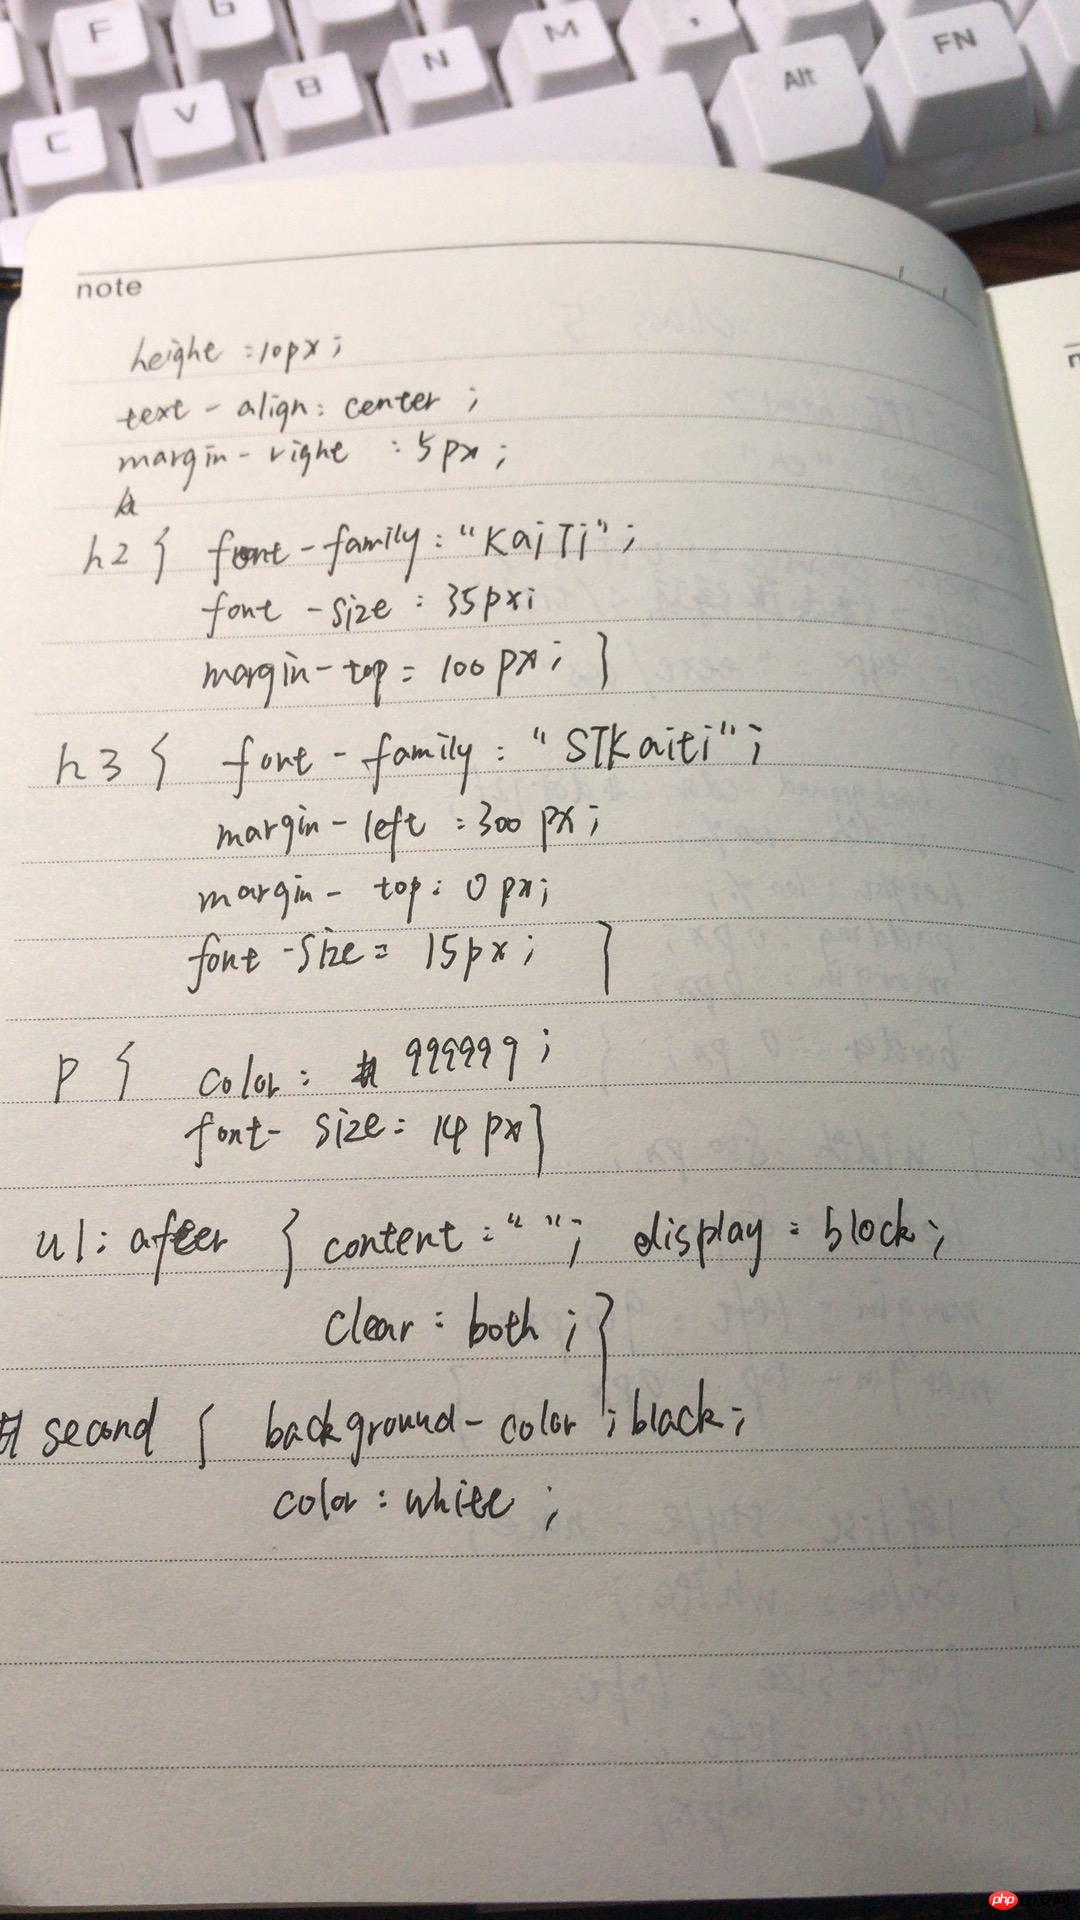 F G
C V B N M , Alt FN
note
height : 10px;
text-align: center;
margin-right : 5px;
h2 { font-family: "KaiTi";
font-size : 35px;
margin-top: 100px; }
h3 { font-family: "STKaiti";
margin-left : 300px;
margin-top: 0px;
font-size: 15px; }
p { color: #999999;
font-size: 14px}
ul: after { content: " "; display: block;
clear: both; }
# second { background-color ; black;
color: white ;
php 中文网